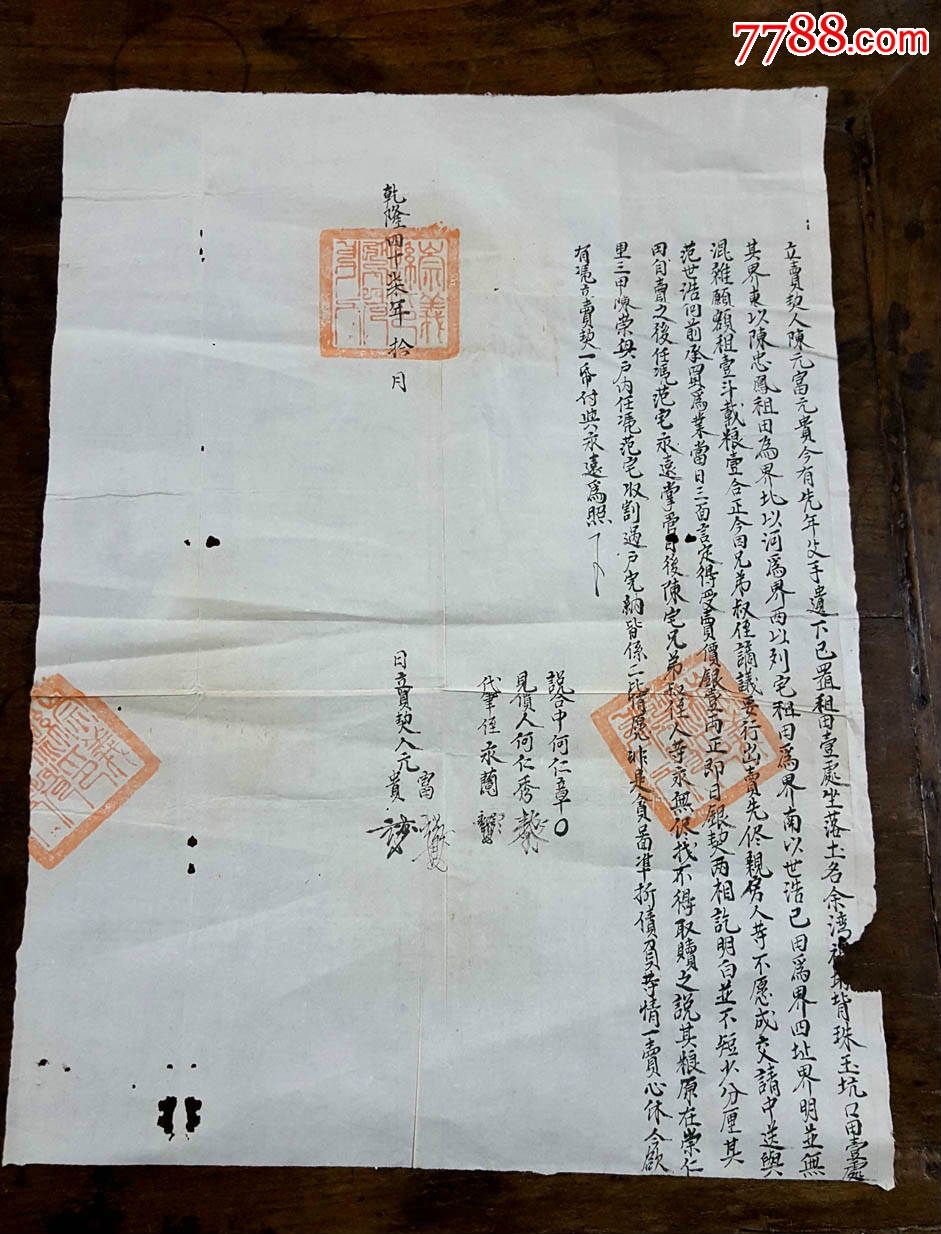 7788.com
立賣契人陳元富元貴今有先年父手遺下已置租田壹處坐落土名余湾背珠玉坑口田壹處
其界東以陳忠鳳祖田為界北以河為界西以列宅租田為界南以世浩已田為界四址界明並無
混雜願額租壹斗載粮壹合正今因兄弟叔侄謪議要行出賣先侭親房人等不愿成交請中送與
范世浩向前承買為業當日三面言定得受賣價銀壹両正即日銀契两相訖明白並不短少分厘其
田自賣之後任凴范宅永遠掌管日後陳宅兄弟叔侄人等永無侭找不得取贖之說其粮原在崇仁
里三甲陳荣與戶内任凴范宅收割過戶完納皆係二比情愿非是負啚準折債負等情一賣心休今欲
有凴立賣契一帋付與永遠為照
說合中何仁章
見價人何仁秀
代筆侄永蘭
乾隆四十柒年拾月日立賣契人元富貴
崇義